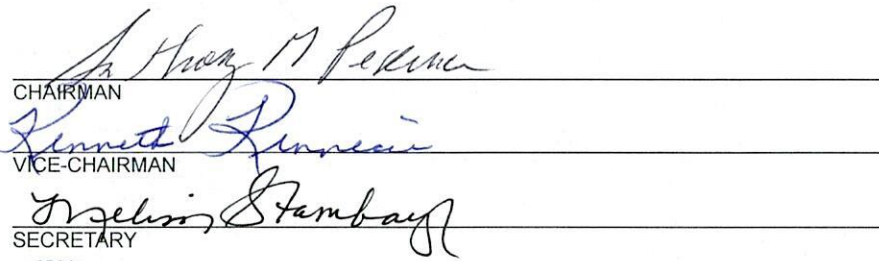 Anthony M
CHAIRMAN
Kenneth
VICE-CHAIRMAN
Melissa Stambaugh
SECRETARY